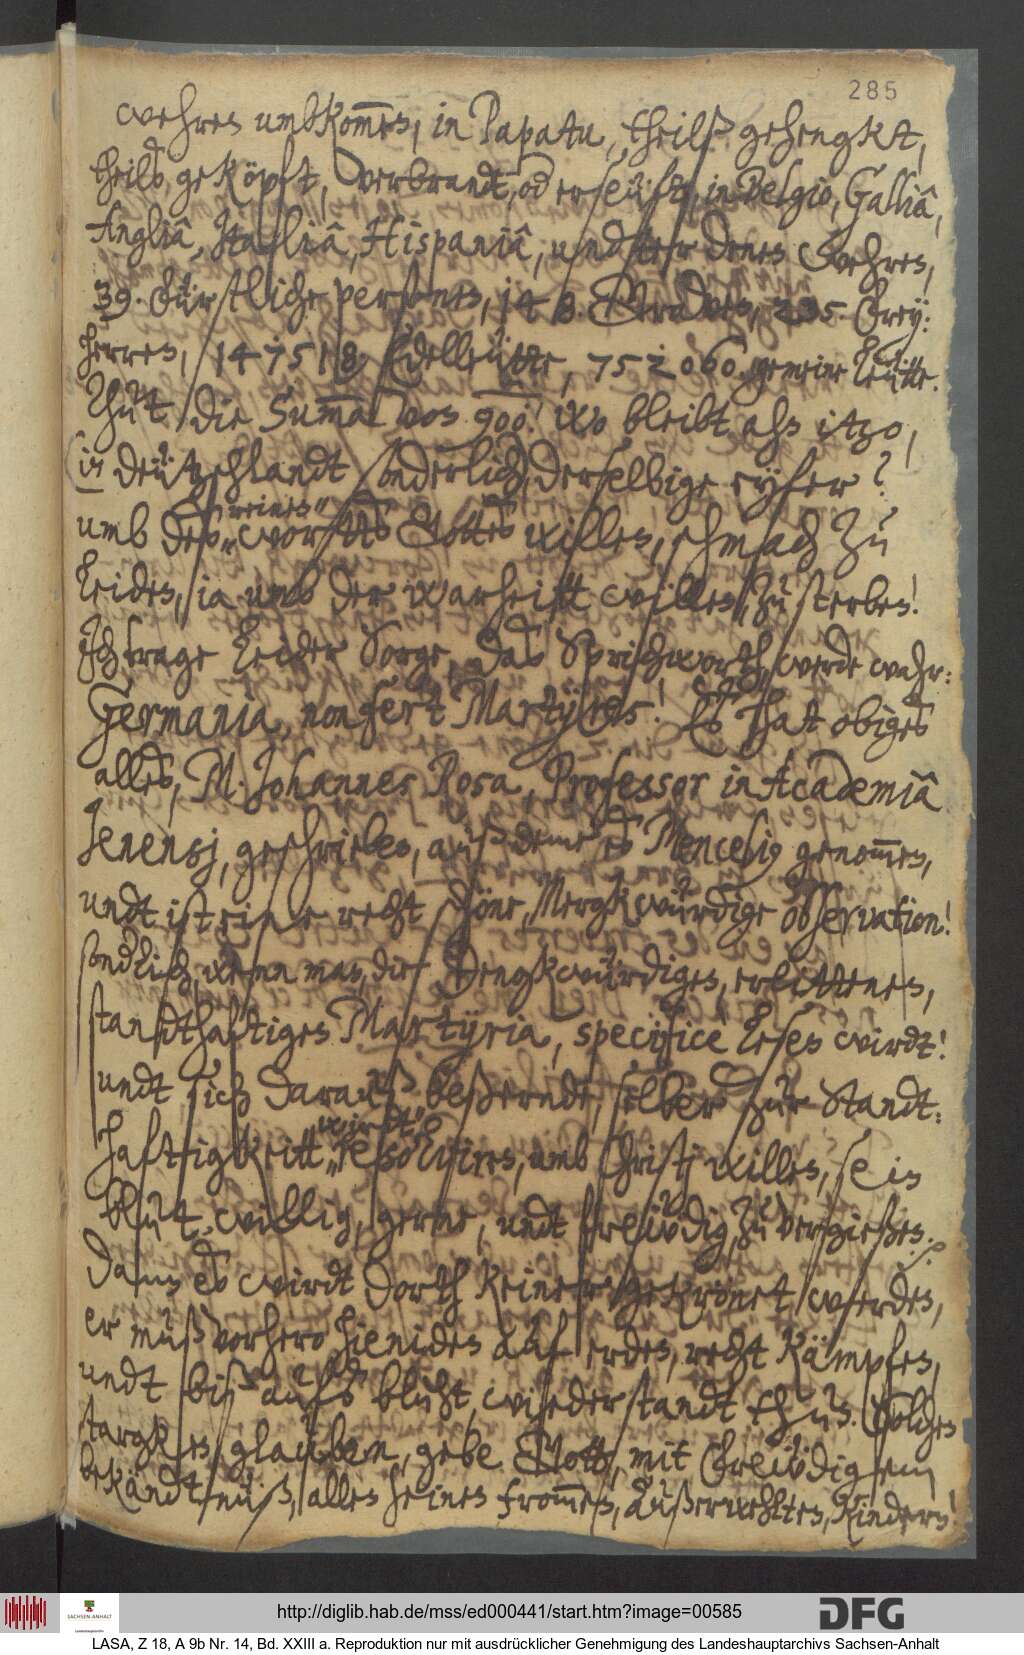 285
wehren umbkom̄en, in Papatu, theilß gehengkt,
theils geköpft, verbrandt, od erseüfft, in Belgio, Galliâ,
Angliâ, Italiâ, Hispaniâ, und
39. Fürstliche personen, 148. Graven, 235. Frey:
herren, 147518 Edelleütte, 752060 gemeine Leütte.
Thut die Sum̄a von 900. Wo bleibt alß itzo,
in Deützschlandt sonderlich, derselbige eyfer?
reinen
umb des worttes Gottes willen, schmach zu
leiden, ia umb der warheitt willen, zu sterben!
Ich trage leider Sorge, das Sprichworth, werde wahr:
Germania, non fert Martÿres! Es hat obiges
alles, M. Johannes Rosa, Professor in Academiâ
Jenensj, geschrieben, auß deme es Mencelig genom̄en,
undt ist eine recht schöne, Mergkwürdige observation!
sondlich, wann man, die Dengkwürdiges, erlittenes,
standthaftiges Martÿria, specificè lesen wirdt!
undt sich darauß beßerndt, selber zur Standt:
wirdt
haftigkeitt resolviren, umb Christj willen, sein
blut, willig, gerne, undt freüdig, zu vergießen.
Dann es wirdt dorth keiner gekrönet werden,
er muß vorhero hieniden auf erden, recht kämpfen,
undt biß aufs bluht, wiederstandt thun. Solchen
stargken glauben, gebe Gott, mit freüdigem
bekändtnüß, allen seinen from̄en, außerwehlten, Kindern!
http://diglib.hab.de/mss/ed000441/start.htm?image=00585
DFG
SACHSEN-ANHALT
LASA, Z 18, A 9b Nr. 14, Bd. XXIII a. Reproduktion nur mit ausdrücklicher Genehmigung des Landeshauptarchivs Sachsen-Anhalt